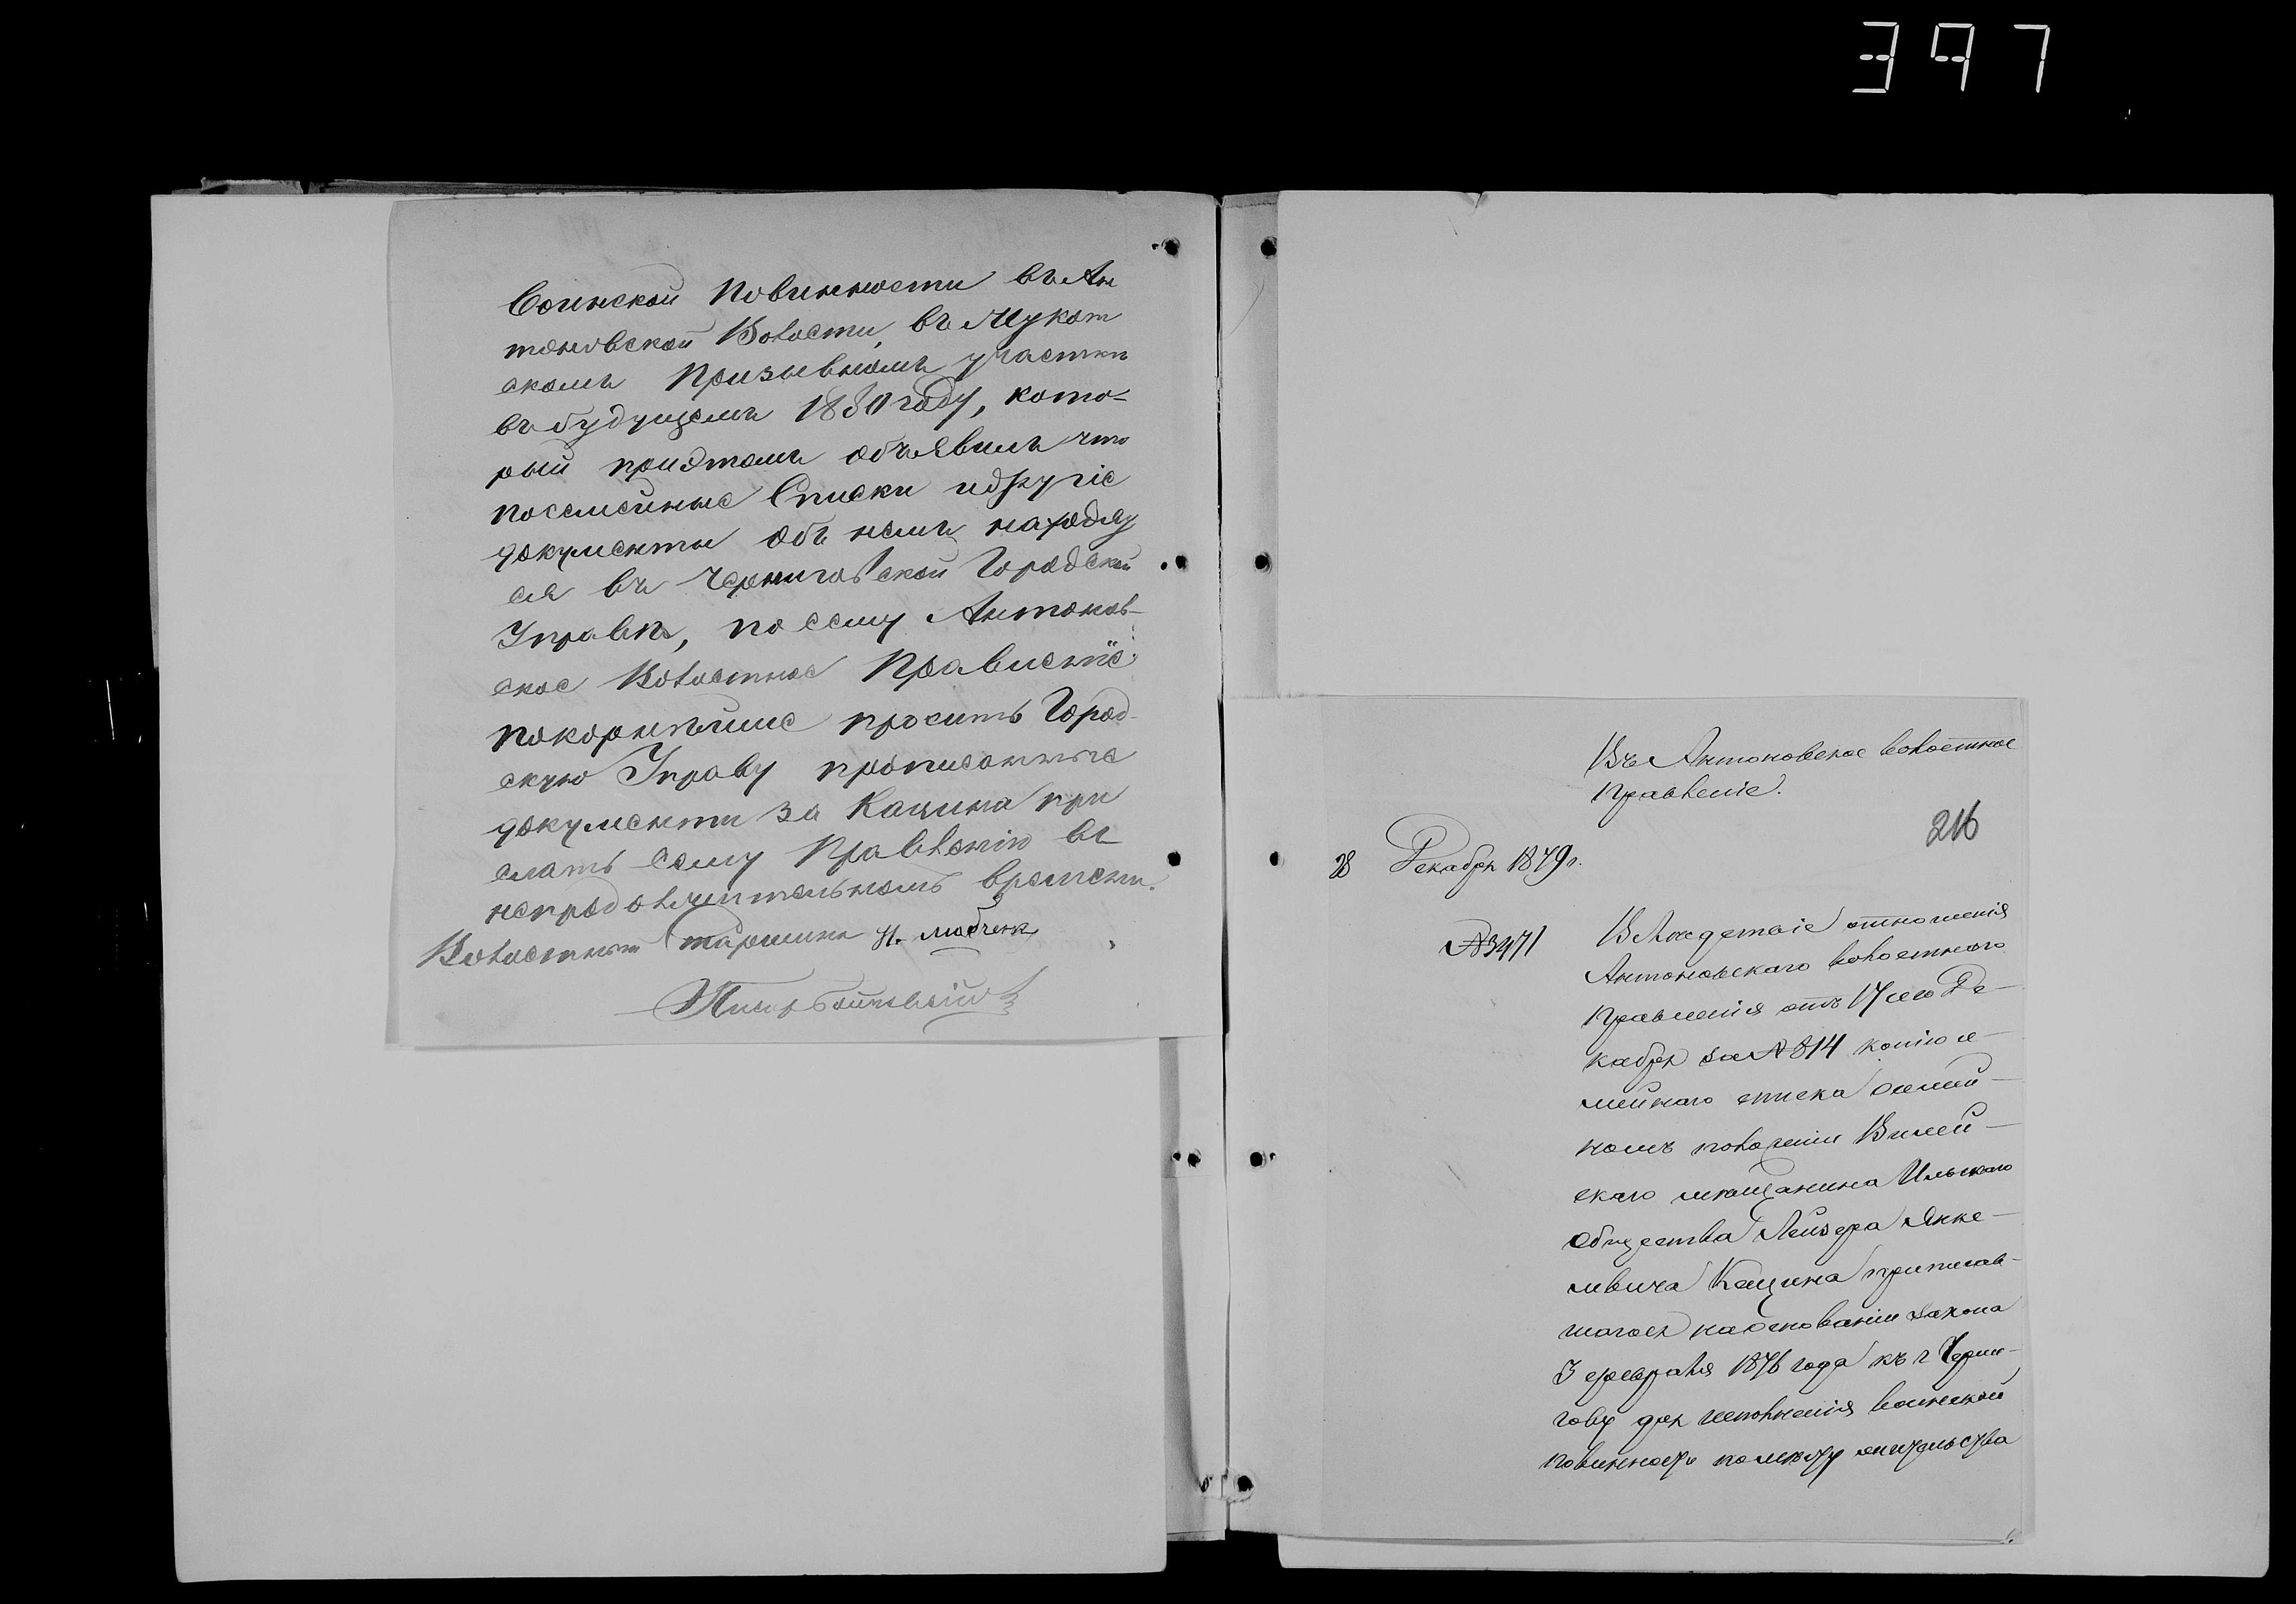 397
Воинской Повинности въ Ан
тоновской Волости, въ Мукот
скомъ Призывномъ участки
въ будущемъ 1880 году, кото-
рый при этомъ объявилъ что
посемейные Списки и другіе
документы объ немъ находят
ся въ Черниговской Городской
Управѣ, по сему Антонов-
ское Волостное Правленіе
покорнѣйше просить Город-
скую Управу прописанные
документы за Кацына при
слать сему Правленію въ
непродолжительномъ времени.
Волостный Старшина Н.
Писарь
Въ Антоновское волостное
Правленіе.
216
28 Декабря 1879 г.
№ 3471
Вслѣдствіе отношенія
Антоновскаго волостного
Правленія отъ 17 сего Де-
кабря за № 814 копію се-
мейнаго списка о
номъ положеніи Вилей-
скаго мѣщанина Ильскаго
общества Лейзера Янке-
левича Кацына приписав-
шагося на основаніи закона
3 февраля 1876 года къ г Черни-
гову для исполненія воинской
повинности по мѣсту жительства